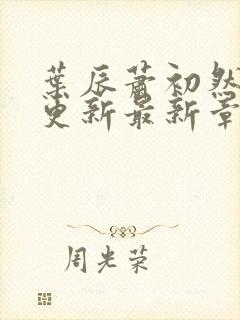 葉辰蕭初然
更新最新章
周光荣